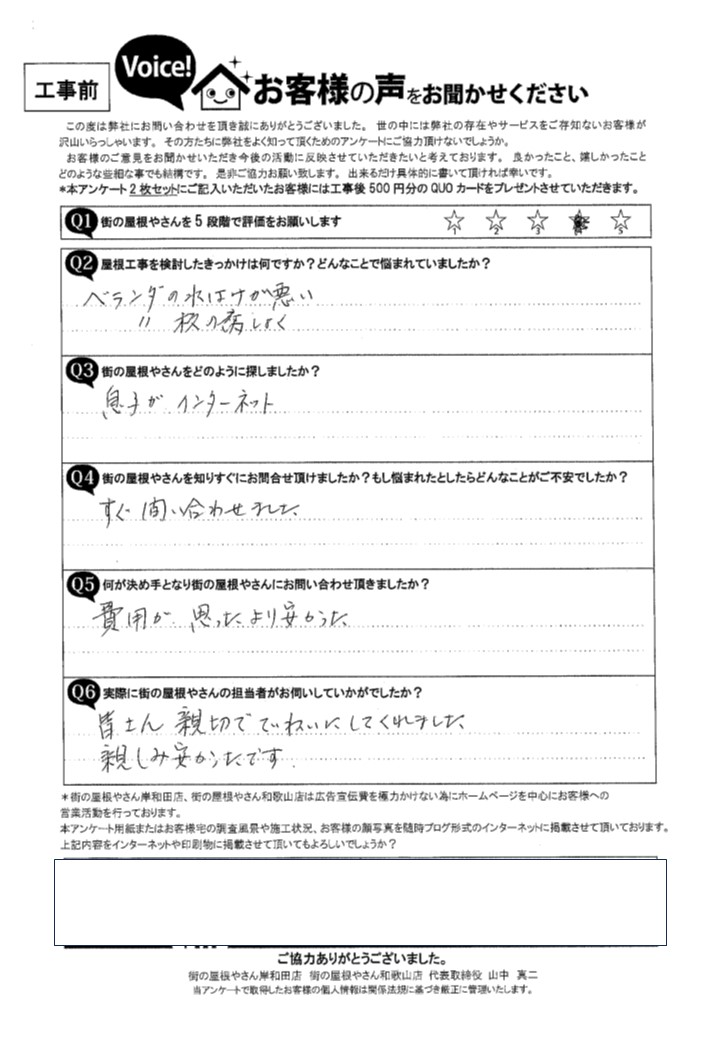 工事前
Voice!
お客様の声をお聞かせください
この度は弊社にお問い合わせを頂き誠にありがとうございました。 世の中には弊社の存在やサービスをご存知ないお客様が
沢山いらっしゃいます。 その方たちに弊社をよく知って頂くためのアンケートにご協力頂けないでしょうか。
お客様のご意見をお聞かせいただき今後の活動に反映させていただきたいと考えております。 良かったこと、嬉しかったこと
どのような些細な事でも結構です。 是非ご協力お願い致します。 出来るだけ具体的に書いて頂ければ幸いです。
*本アンケート2枚セットにご記入いただいたお客様には工事後500円分のQUOカードをプレゼントさせていただきます。
Q1 街の屋根やさんを5段階で評価をお願いします
1 2 3 5
Q2 屋根工事を検討したきっかけは何ですか？どんなことで悩まれていましたか？
ベランダの水はけが悪い
〃 板の腐しょく
Q3 街の屋根やさんをどのように探しましたか？
息子が インターネット
Q4 街の屋根やさんを知りすぐにお問合せ頂けましたか？もし悩まれたとしたらどんなことがご不安でしたか？
すぐ 問い合わせました
Q5 何が決め手となり街の屋根やさんにお問い合わせ頂きましたか？
費用が 思ったより安かった
Q6 実際に街の屋根やさんの担当者がお伺いしていかがでしたか？
皆さん 親切で ていねいにしてくれました
親しみ安かったです.
*街の屋根やさん岸和田店、街の屋根やさん和歌山店は広告宣伝費を極力かけない為にホームページを中心にお客様への
営業活動を行っております。
本アンケート用紙またはお客様宅の調査風景や施工状況、お客様の顔写真を随時ブログ形式のインターネットに掲載させて頂いております。
上記内容をインターネットや印刷物に掲載させて頂いてもよろしいでしょうか？
ご協力ありがとうございました。
街の屋根やさん岸和田店 街の屋根やさん和歌山店 代表取締役 山中 真二
当アンケートで取得したお客様の個人情報は関係法規に基づき厳正に管理いたします。